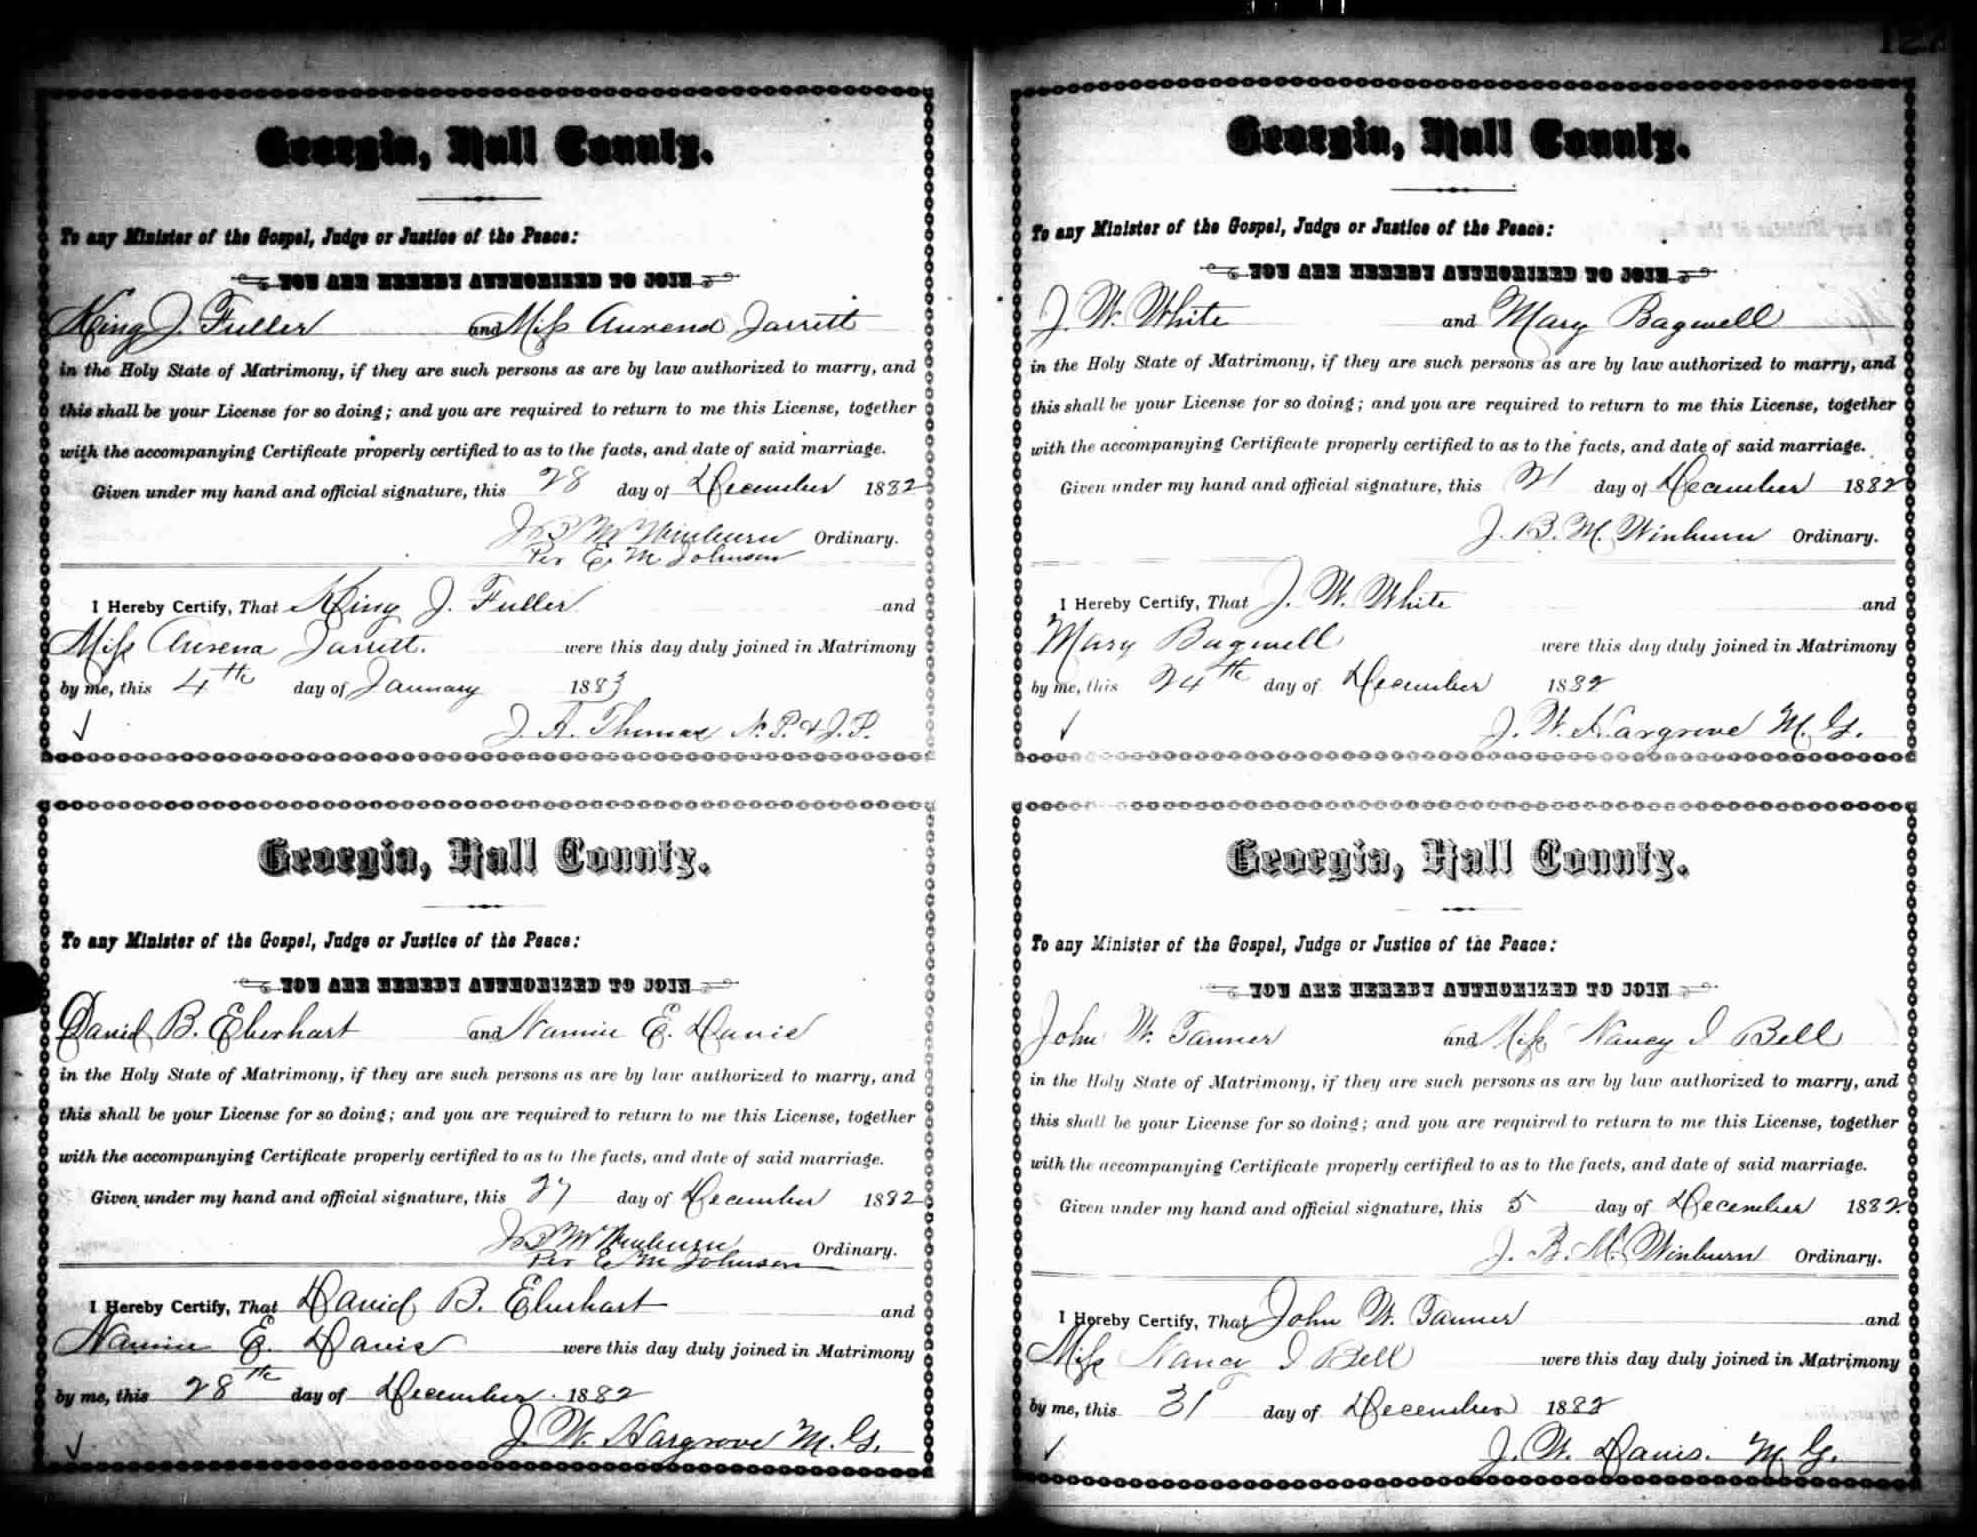 Georgia, Hall County.
To any Minister of the Gospel, Judge or Justice of the Peace:
YOU ARE HEREBY AUTHORIZED TO JOIN
King J. Fuller and Miss Aurena Jarrett
in the Holy State of Matrimony, if they are such persons as are by law authorized to marry, and
this shall be your License for so doing; and you are required to return to me this License, together
with the accompanying Certificate properly certified to as to the facts, and date of said marriage.
Given under my hand and official signature, this 28 day of December 1882
J B M Winburn Ordinary.
Per E M Johnson
I Hereby Certify, That King J. Fuller and
Miss Aurena Jarrett. were this day duly joined in Matrimony
by me, this 4th day of January 1883
J. A. Thomas N. P. & J. P.
Georgia, Hall County.
To any Minister of the Gospel, Judge or Justice of the Peace:
YOU ARE HEREBY AUTHORIZED TO JOIN
David B. Eberhart and Nannie E. Davis
in the Holy State of Matrimony, if they are such persons as are by law authorized to marry, and
this shall be your License for so doing; and you are required to return to me this License, together
with the accompanying Certificate properly certified to as to the facts, and date of said marriage.
Given under my hand and official signature, this 27 day of December 1882
J B M Winburn Ordinary.
Per E M Johnson
I Hereby Certify, That David B. Eberhart and
Nannie E. Davis were this day duly joined in Matrimony
by me, this 28th day of December 1882
J. W. Hargrove M. G.
Georgia, Hall County.
To any Minister of the Gospel, Judge or Justice of the Peace:
YOU ARE HEREBY AUTHORIZED TO JOIN
J. W. White and Mary Bagwell
in the Holy State of Matrimony, if they are such persons as are by law authorized to marry, and
this shall be your License for so doing; and you are required to return to me this License, together
with the accompanying Certificate properly certified to as to the facts, and date of said marriage.
Given under my hand and official signature, this 21 day of December 1882
J. B. M. Winburn Ordinary.
I Hereby Certify, That J. W. White and
Mary Bagwell were this day duly joined in Matrimony
by me, this 24th day of December 1882
J. W. Hargrove M. G.
Georgia, Hall County.
To any Minister of the Gospel, Judge or Justice of the Peace:
YOU ARE HEREBY AUTHORIZED TO JOIN
John W. Tanner and Miss Nancy I Bell
in the Holy State of Matrimony, if they are such persons as are by law authorized to marry, and
this shall be your License for so doing; and you are required to return to me this License, together
with the accompanying Certificate properly certified to as to the facts, and date of said marriage.
Given under my hand and official signature, this 5 day of December 1882
J. B. M. Winburn Ordinary.
I Hereby Certify, That John W. Tanner and
Miss Nancy I Bell were this day duly joined in Matrimony
by me, this 31 day of December 1882
J. W. Davis. M. G.